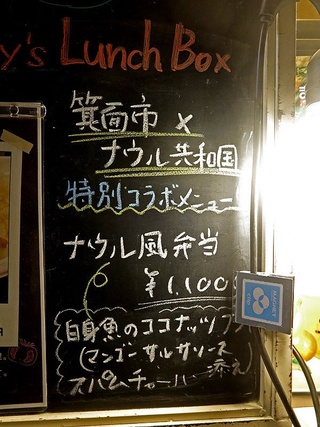 y's Lunch Box
箕面市 ×
ナウル共和国
特別コラボメニュー
ナウル風弁当
¥1,100
白身魚のココナッツフラ
(マンゴーサルサソース
添え
スパムチャーハン